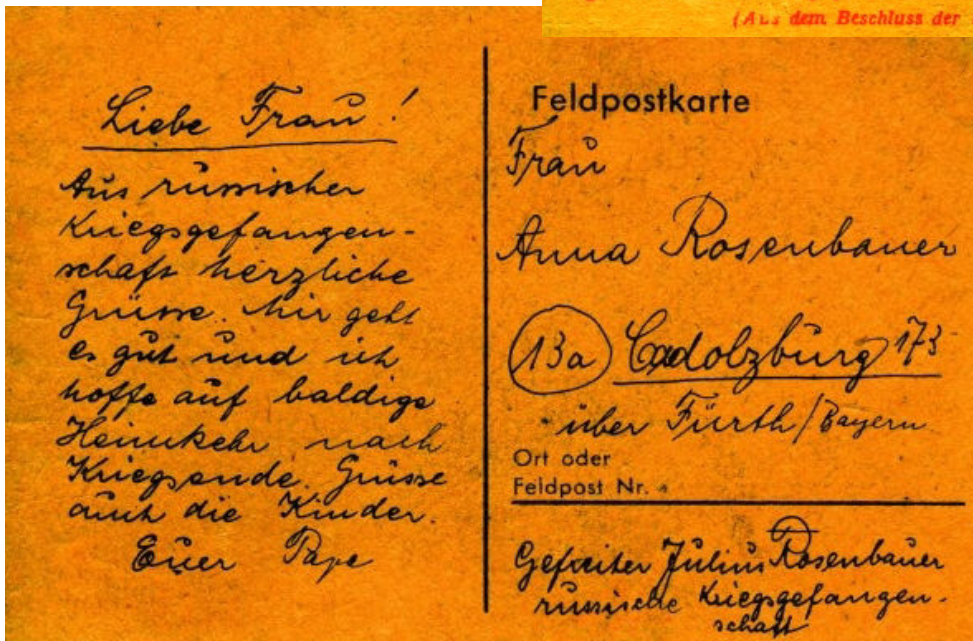 (Aus dem Beschluss der
Liebe Frau!
Aus russischer
Kriegsgefangen-
schaft herzliche
Grüsse. Mir geht
es gut und ich
hoffe auf baldige
Heimkehr nach
Kriegsende. Grüsse
auch die Kinder.
Euer Papa
Feldpostkarte
Frau
Anna Rosenbauer
13a Cadolzburg 173
über Fürth/Bayern
Ort oder
Feldpost Nr.
Gefreiter Julius Rosenbauer
russische Kriegsgefangen-
schaft